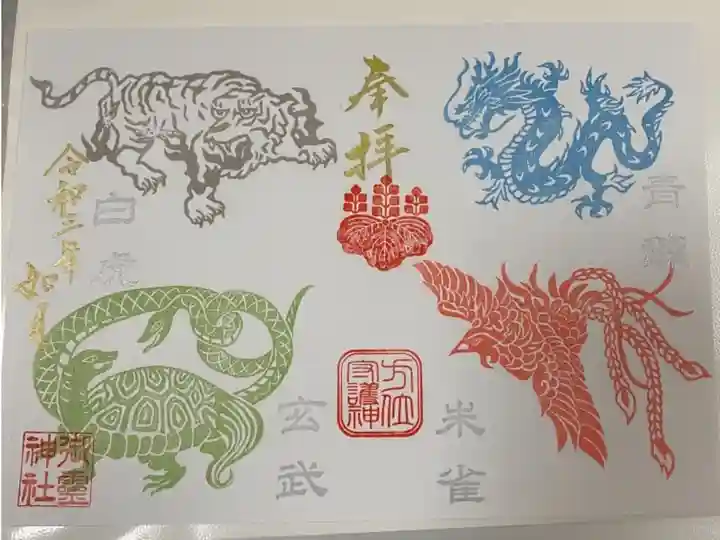 奉拝
青龍
白虎
令和二年
如月
朱雀
玄武
方位
守護神
御霊
神社